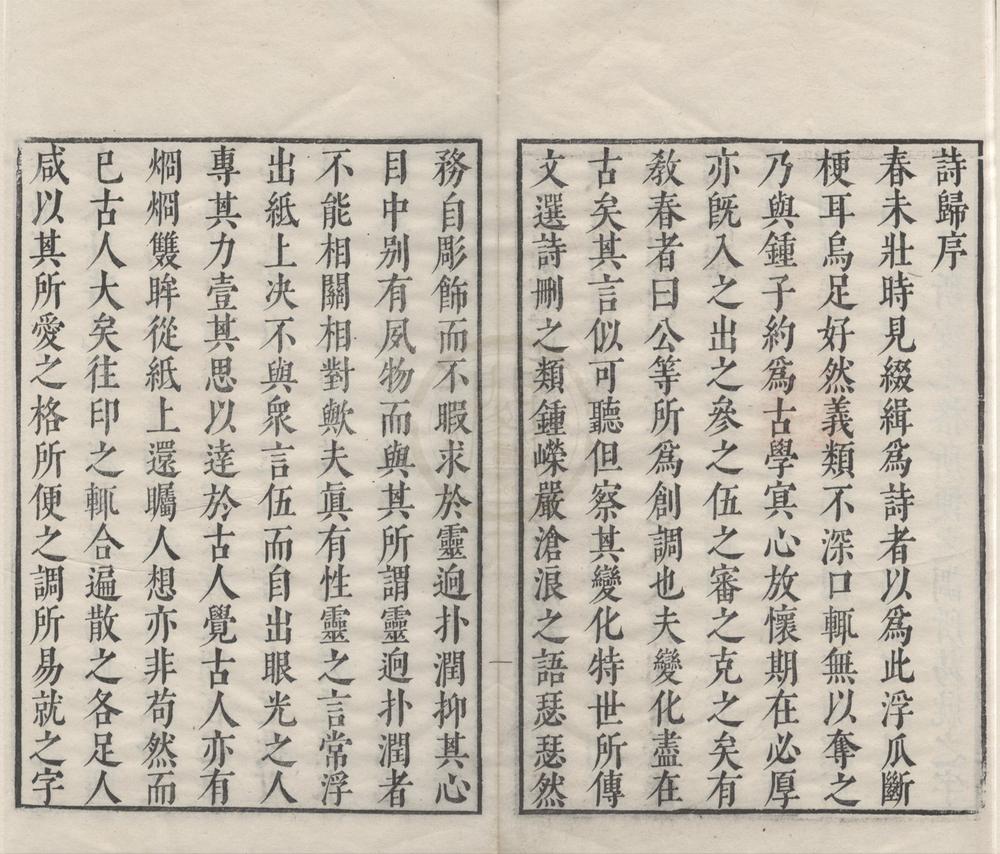 詩歸序
春未壯時見綴緝為詩者以為此浮瓜斷
梗耳烏足好然義類不深口輒無以奪之
乃與鍾子約為古學冥心放懷期在必厚
亦旣入之出之參之伍之審之克之矣有
敎春者曰公等所為創調也夫變化盡在
古矣其言似可聽但察其變化特世所傳
文選詩刪之類鍾嶸嚴滄浪之語瑟瑟然
務自彫飾而不暇求於靈逈扑潤抑其心
目中别有夙物而與其所謂靈逈扑潤者
不能相關相對歟夫眞有性靈之言常浮
出紙上决不與衆言伍而自出眼光之人
專其力壹其思以達於古人覺古人亦有
烱烱雙眸從紙上還矚人想亦非苟然而
已古人大矣往印之輒合遍散之各足人
咸以其所愛之格所便之調所易就之字